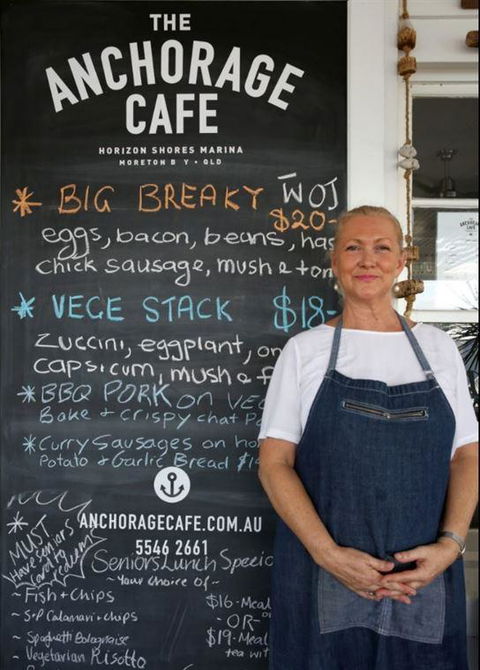 THE
ANCHORAGE
CAFE
HORIZON SHORES MARINA
MORETON B Y • QLD
* BIG BREAKY WOJ
$20-
eggs, bacon, beans, has
chick sausage, mush & tom
* VEGE STACK $18-
Zuccini, eggplant, on
capsicum, mush & f
* BBQ PORK on VEG
Bake + crispy chat p
* Curry Sausages on ho
Potato + Garlic Bread $1
ANCHORAGECAFE.COM.AU
5546 2661
* MUST
Have seniors
Card to
Seniors Lunch Specia
~ Your choice of ~
~ Fish + Chips
~ S+P Calamari + chips
~ Spaghetti Bolognaise
~ Vegetarian Risotto
$16 - Meal
- OR -
$19 - Meal
tea wit
THE
ANCHORAGE
CAFE